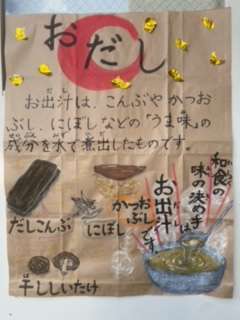 おだし
お出汁は、こんぶや かつお
ぶし、にぼしなどの「うま味」の
成分を水で煮出したものです。
和食の
味の決め手
お出汁は
です
だしこんぶ
にぼし
かつお
ぶし
干ししいたけ